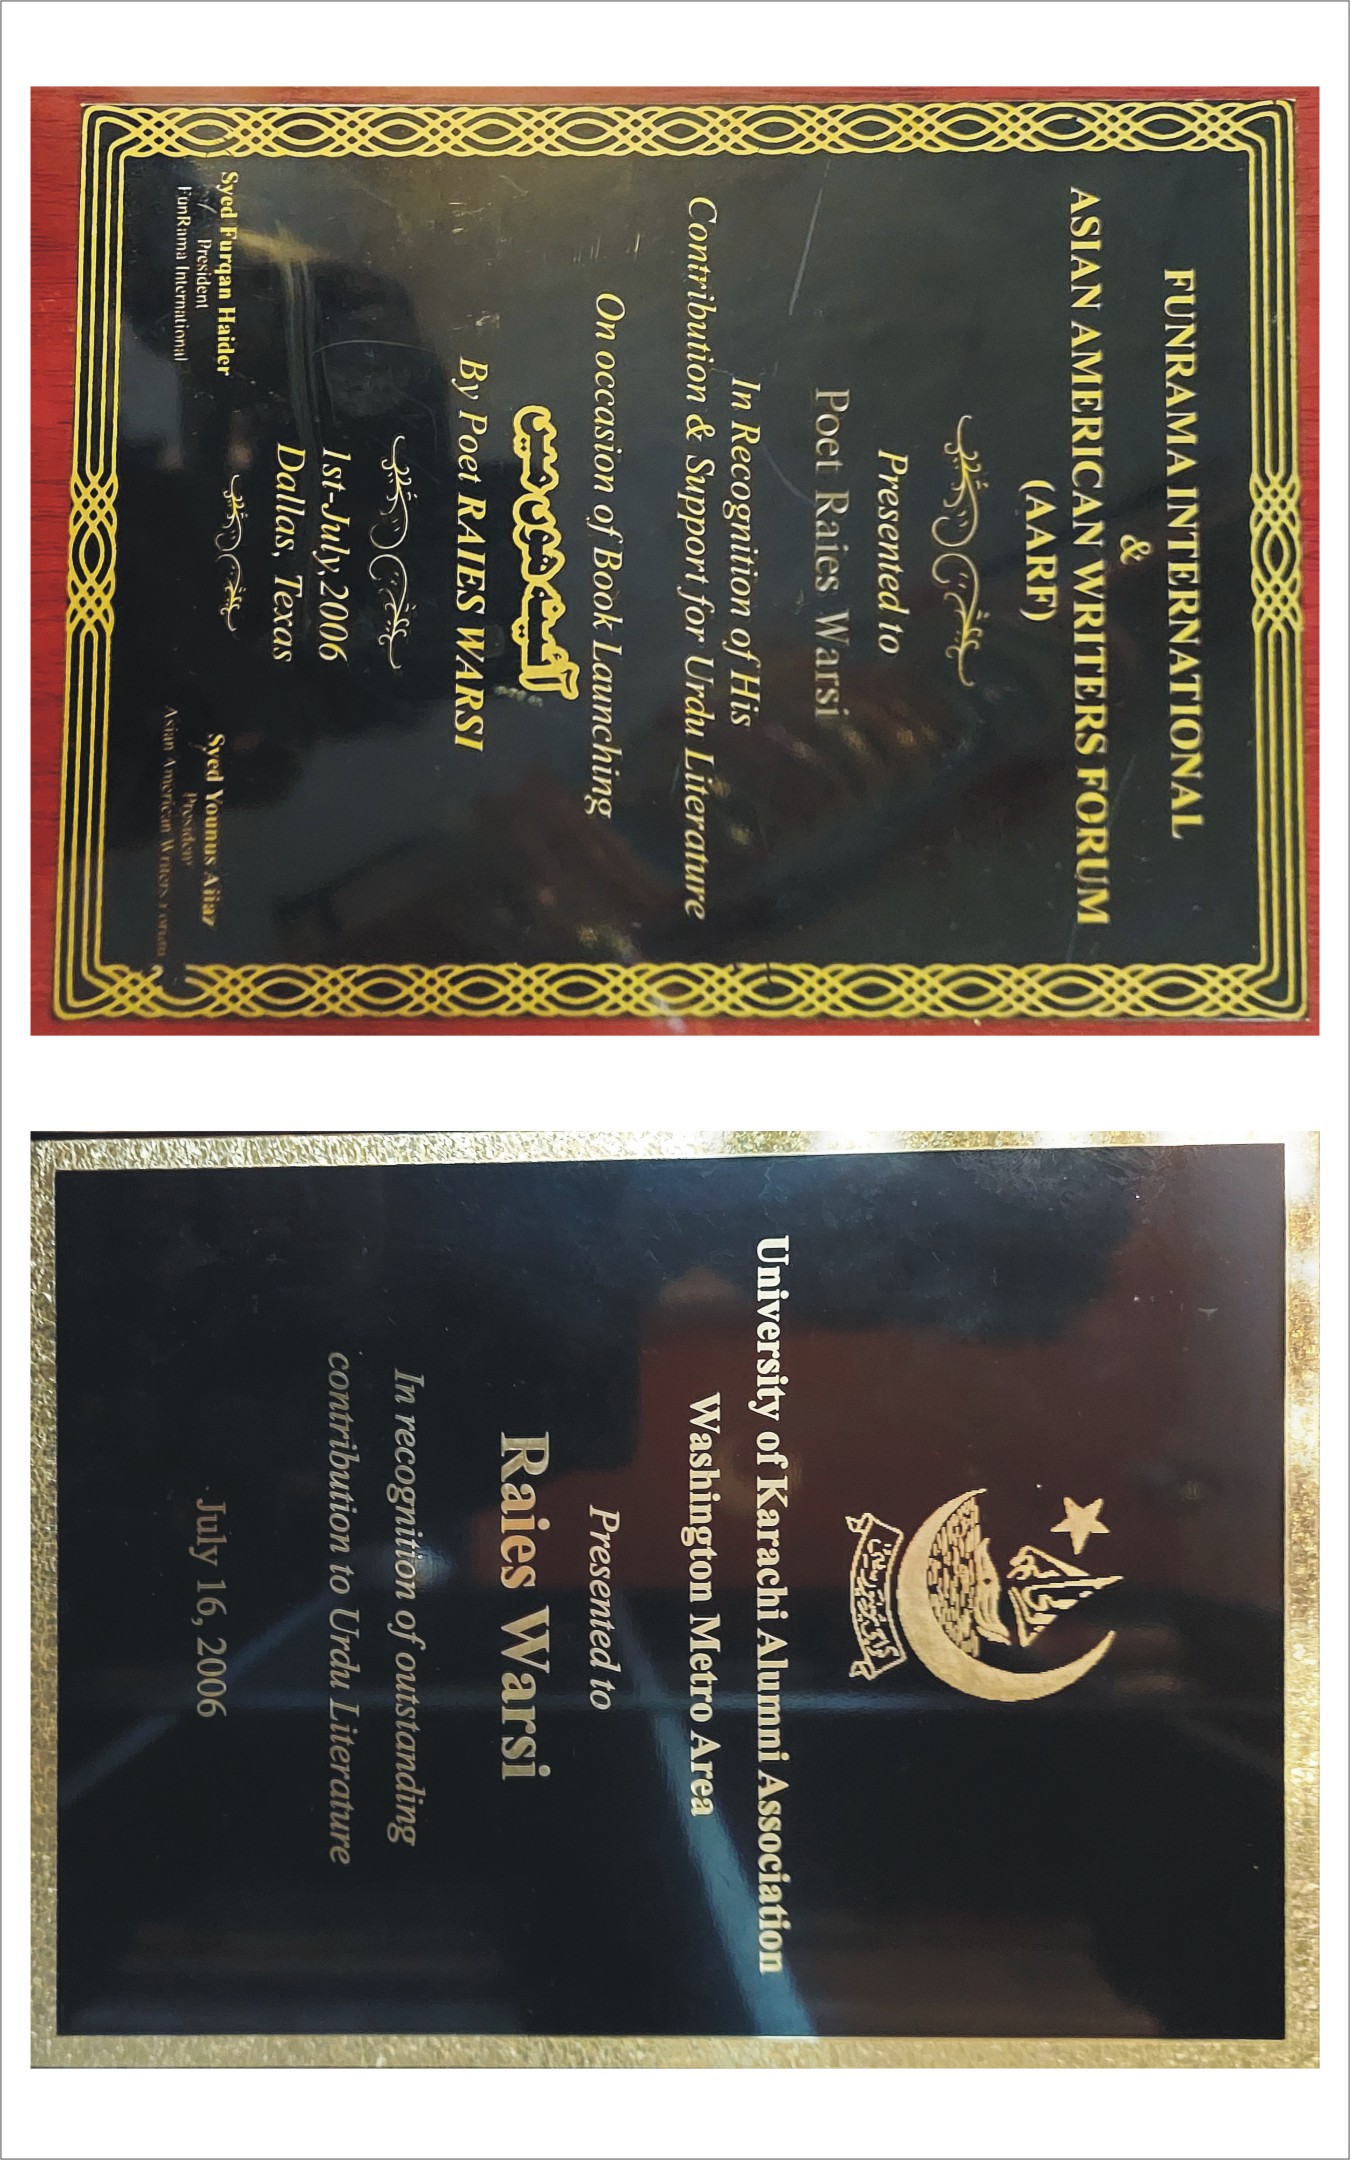 FUNRAMA INTERNATIONAL
&
ASIAN AMERICAN WRITERS FORUM
(AARF)
Presented to
Poet Raies Warsi
In Recognition of His
Contribution & Support for Urdu Literature
On occasion of Book Launching
آئینہ ہوں میں
By Poet RAIES WARSI
1st-July,2006
Dallas, Texas
Syed Furqan Haider
President
FunRama International
Syed Younus Aijaz
President
Asian American Writers Forum
University of Karachi Alumni Association
Washington Metro Area
Presented to
Raies Warsi
In recognition of outstanding
contribution to Urdu Literature
July 16, 2006